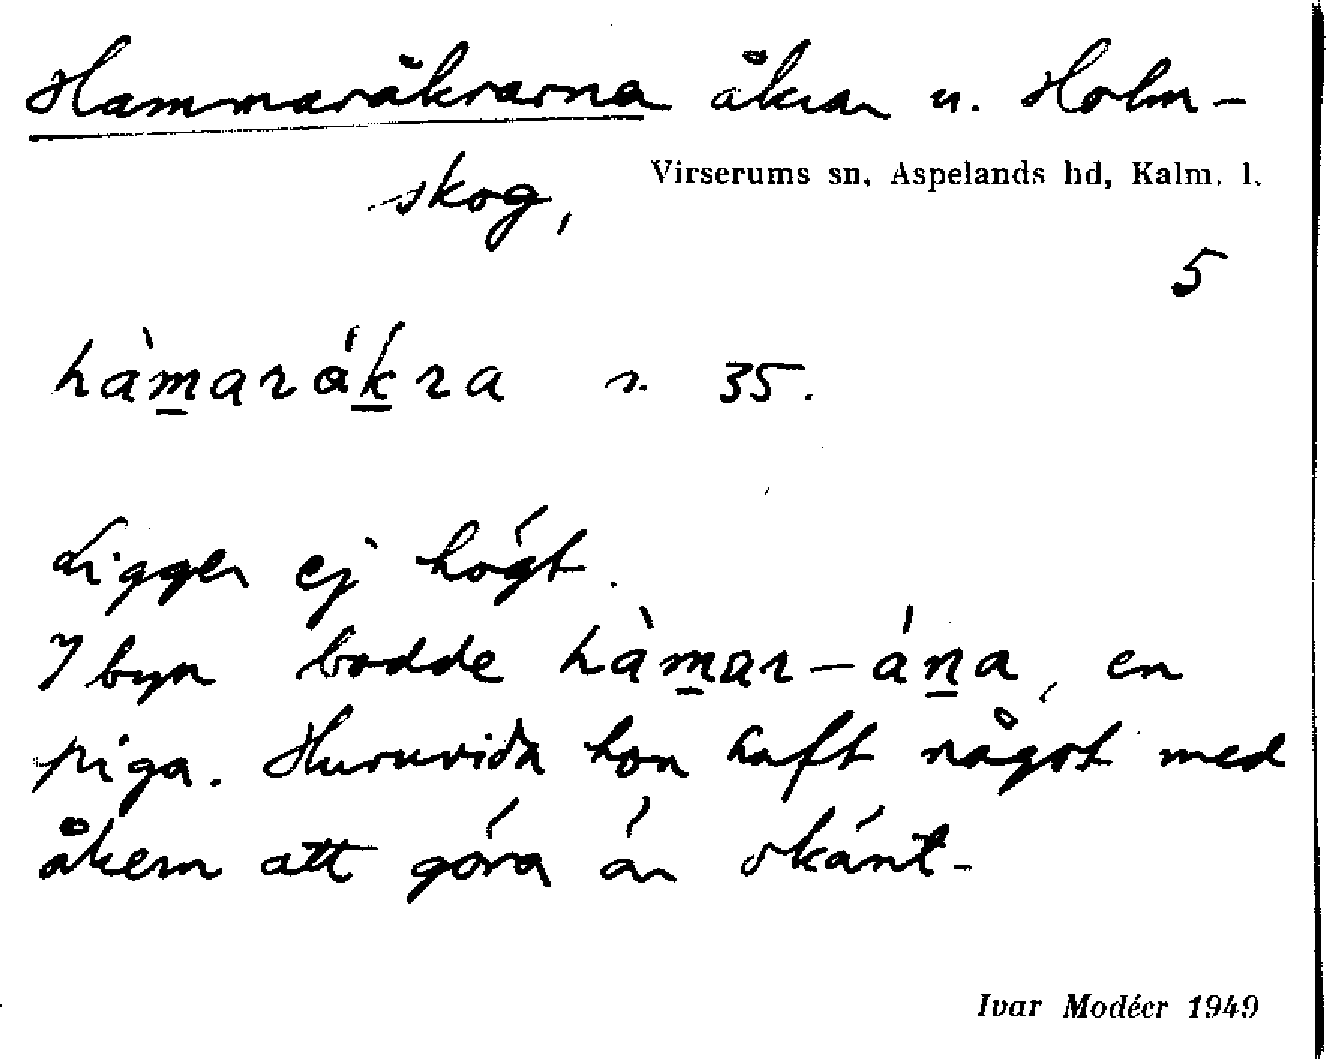 Hammaråkrarna åkrar u. Holm-
skog,
Virserums sn, Aspelands hd, Kalm. l.
5
hàmarákra s. 35.
Ligger ej högt.
I byn bodde hàmar-ána, en
piga. Huruvida hon haft något med
åkern att göra är okänt-
Ivar Modéer 1949